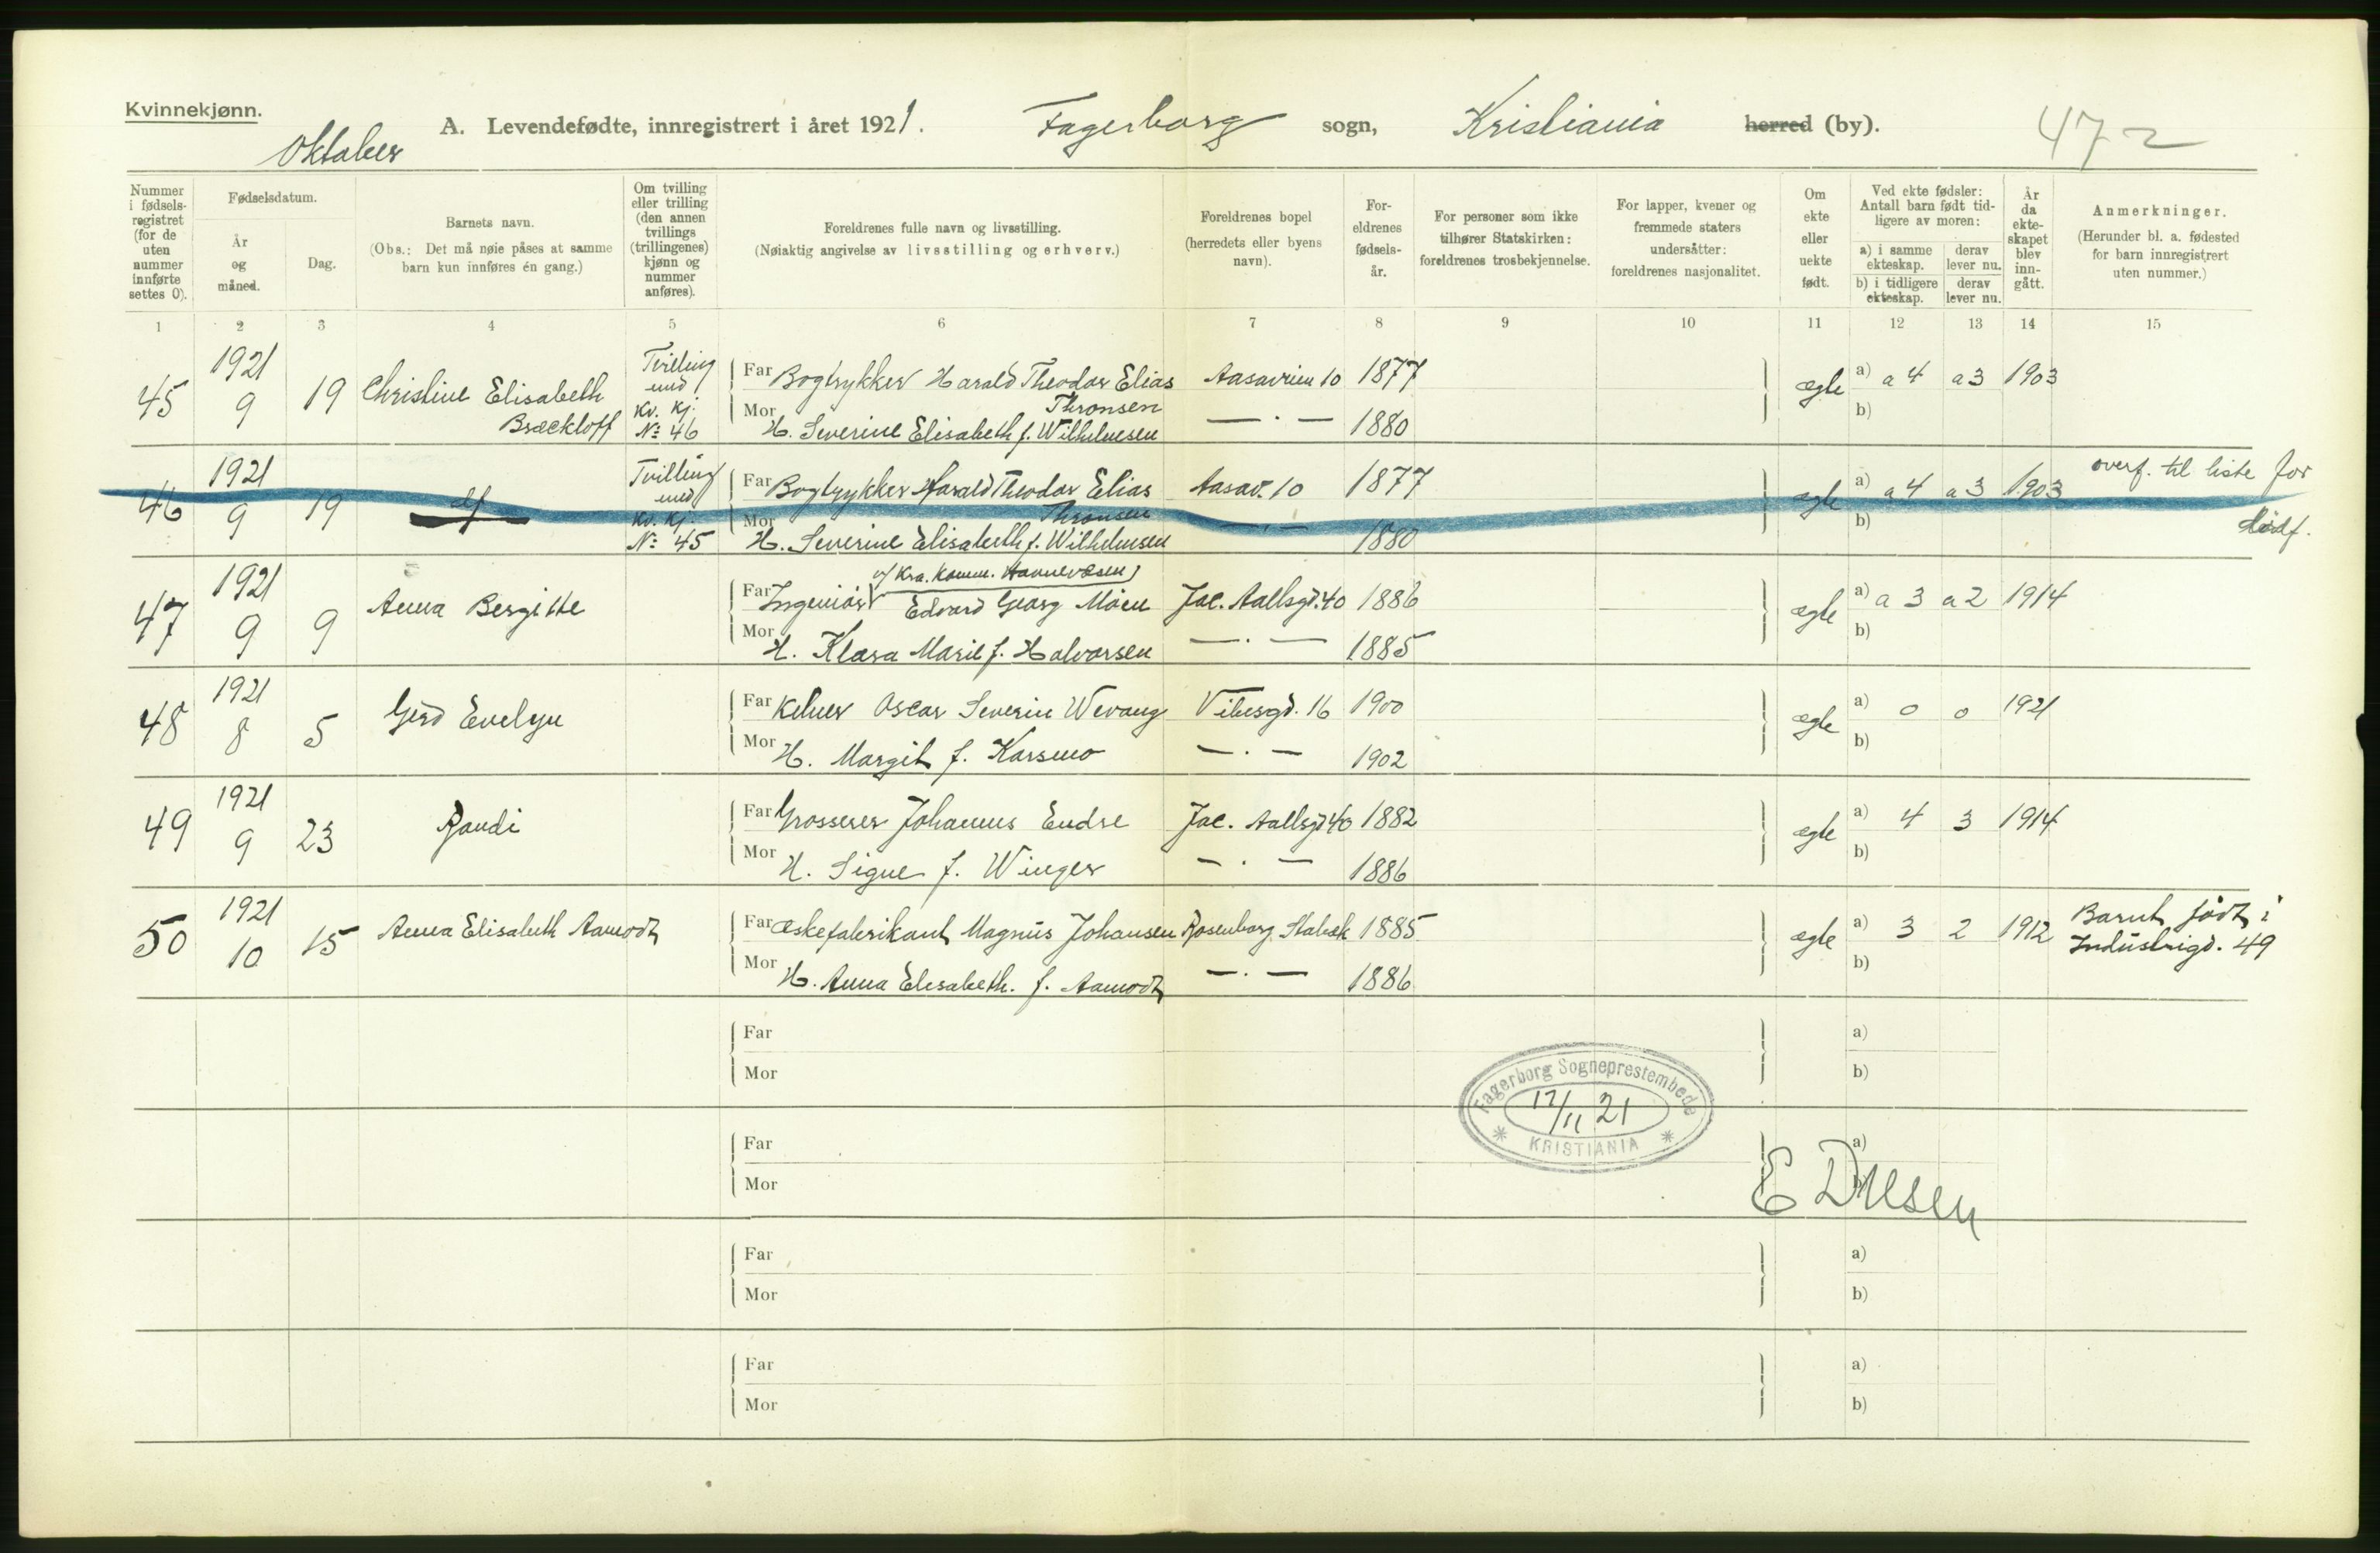 Kvinnekjønn.
Oktober
A. Levendefødte, innregistrert i året 1921. Fagerborg sogn, Kristiania herred (by). 472
Nummer i fødsels-registret (for de uten nummer innførte settes 0).
Fødselsdatum.
År og måned.
Dag.
Barnets navn.
(Obs.: Det må nøie påses at samme barn kun innføres én gang.)
Om tvilling eller trilling (den annen tvillings (trillingenes) kjønn og nummer anføres).
Foreldrenes fulle navn og livsstilling.
(Nøiaktig angivelse av livsstilling og erhverv.)
Foreldrenes bopel (herredets eller byens navn).
For-eldrenes fødsels-år.
For personer som ikke tilhører Statskirken: foreldrenes trosbekjennelse.
For lapper, kvener og fremmede staters undersåtter: foreldrenes nasjonalitet.
Om ekte eller uekte født.
Ved ekte fødsler: Antall barn født tid-ligere av moren:
a) i samme ekteskap. derav lever nu.
b) i tidligere ekteskap. derav lever nu.
År da ekte-skapet blev inn-gått.
Anmerkninger.
(Herunder bl. a. fødested for barn innregistrert uten nummer.)
1 2 3 4 5 6 7 8 9 10 11 12 13 14 15
45 1921 9 19 Christine Elisabeth Tvilling med kv. kj. No 46
Far Bogtrykker Harald Theodor Elias Thronsen Aasaveien 10 1877 ægte a) a 4 a 3 1903
Mor H. Severine Elisabeth f. Wilhelmsen — . — 1880 b)
46 1921 9 19 Tvilling med kv. kj. No 45
Far Bogtrykker Harald Theodor Elias Thronsen Aasav. 10 1877 ægte a) a 4 a 3 1903 overf. til liste for dødf.
Mor H. Severine Elisabeth f. Wilhelmsen — . — 1880 b)
47 1921 9 9 Anna Bergitte
Far Ingeniør v/ Kra. Komm. Havnevæsen Edvard Georg Moen Jac. Aallsgd. 40 1886 ægte a) a 3 a 2 1914
Mor H. Klara Marie f. Halvorsen — . — 1885 b)
48 1921 8 5 Gerd Evelyn
Far Kelner Oscar Severin Wevang Vibesgd. 16 1900 ægte a) 0 0 1921
Mor H. Margit f. Karsmo — . — 1902 b)
49 1921 9 23 Randi
Far Grosserer Johannes Endre Jac. Aallsgd 40 1882 ægte a) 4 3 1914
Mor H. Signe f. Winger — . — 1886 b)
50 1921 10 15 Anna Elisabeth Aamodt
Far Æskefabrikant Magnus Johansen Rosenborg Stabæk 1885 ægte a) 3 2 1912 Barnet født i Industrigd. 49
Mor H. Anna Elisabeth. f. Aamodt — . — 1886 b)
Far a)
Mor b)
Fagerborg Sogneprestembede
17/11 21
KRISTIANIA
Far a)
Mor b)
Far a)
Mor b)
Far a)
Mor b)